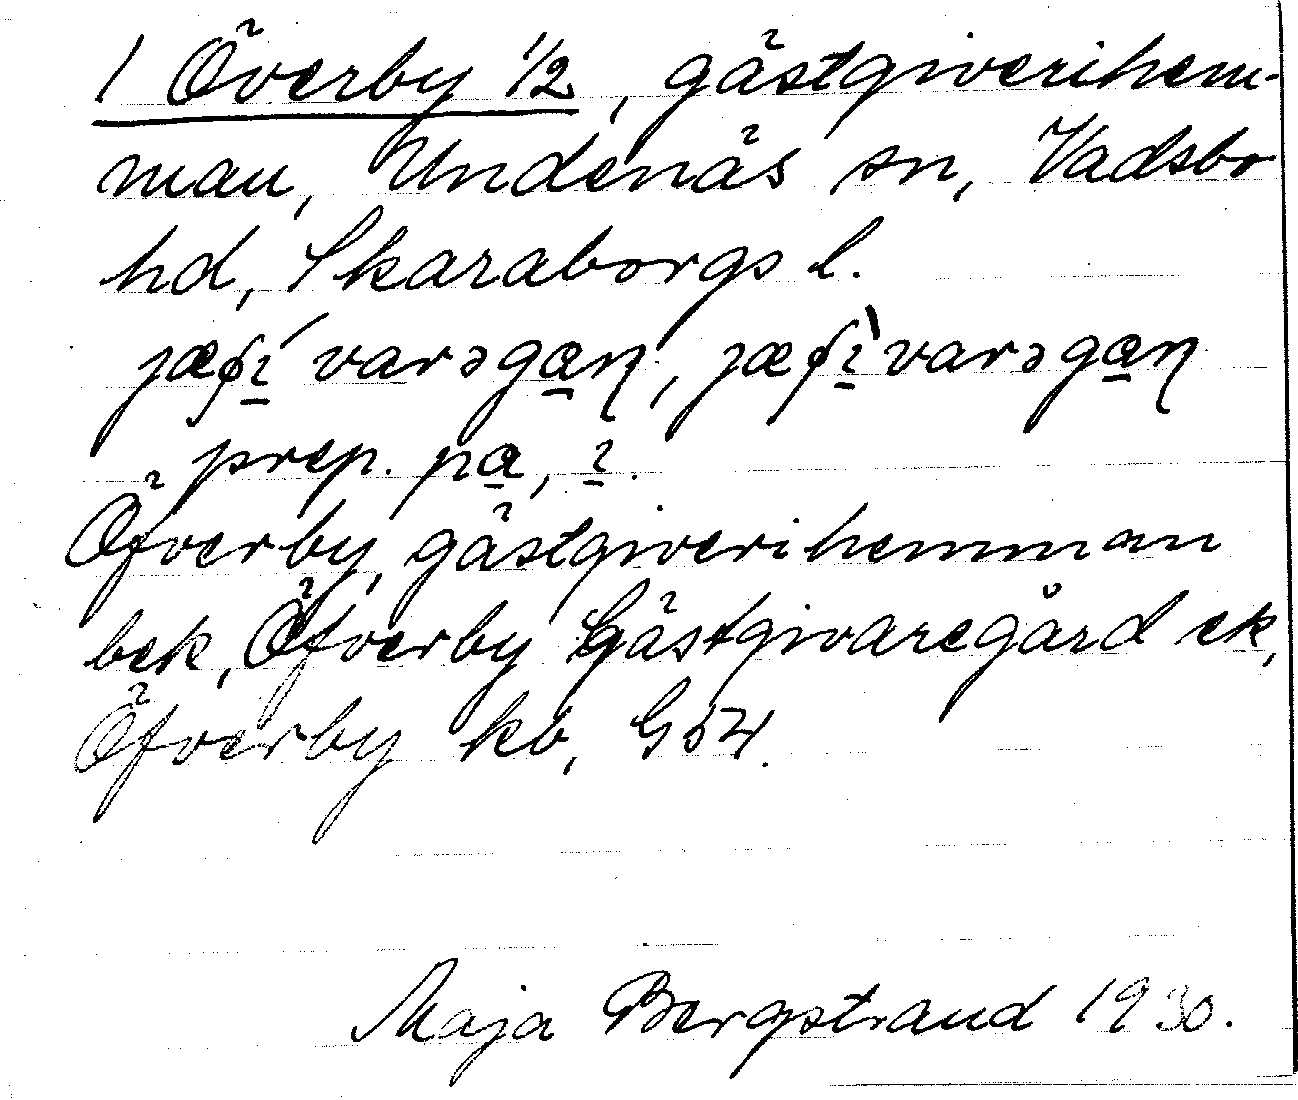 1 Överby 1/2, gästgiverihem-
man, Undenäs sn, Vadsbo
hd, Skaraborgs l.
jæʃi varəgaɳ, jæʃi varəgaɳ
prep. pa, ı.
Öfverby, gästgiverihemman
bek, Öfverby Gästgivaregård ek,
Öfverby kb, GöK.
Maja Bergstrand 1930.